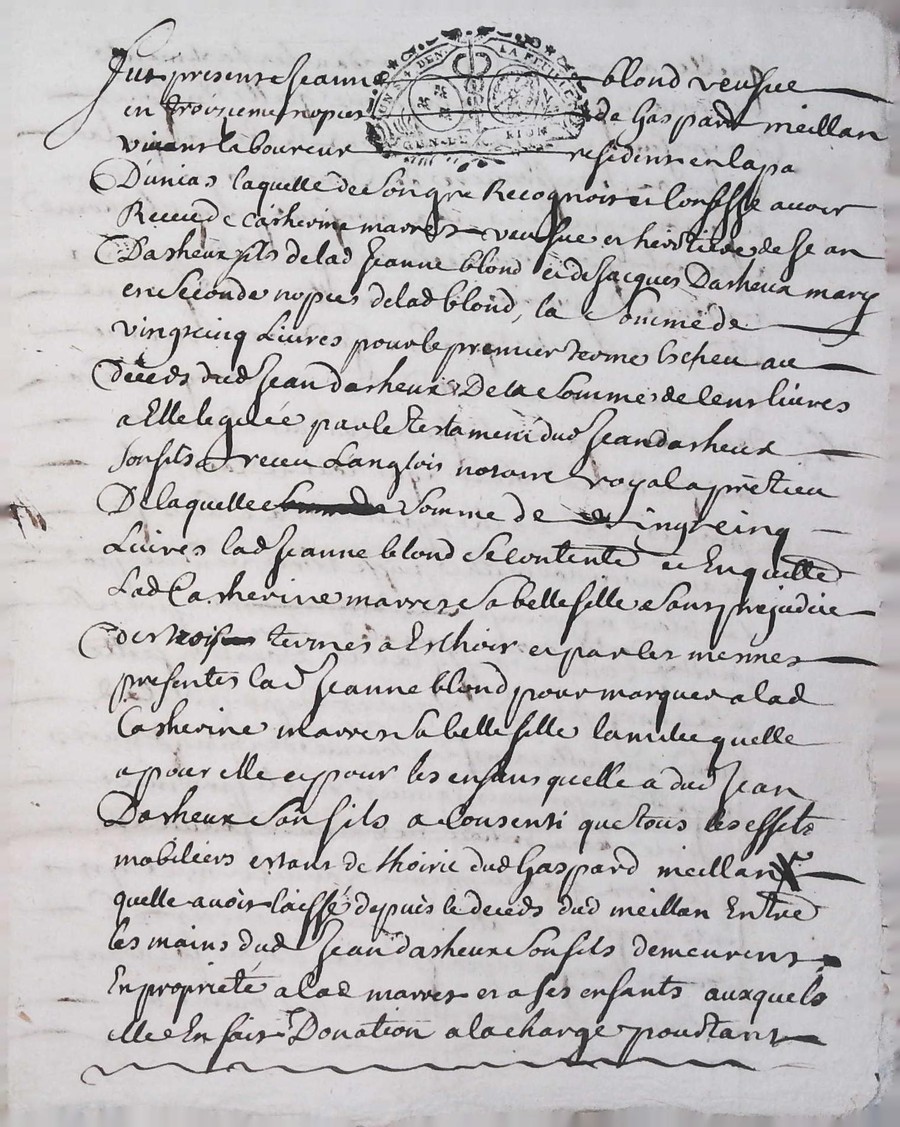 UN S 4 DEN. LA FEUILLE
GEN. DE RIOM
fut presente Jeanne blond veufve
en troisieme nopces de Gaspard meillan
vivant laboureur residente en la pa
D'unias laquelle de son gré Recognoit et Confesse avoir
Receu de Catherine marret veufve et heritiere de Jean
Dasheux fils de lad Jeanne blond et de Jacques Dasheux mary
en seconde nopces de lad blond, la Somme de
vingt cinq Livres pour le premier terme Escheu au
deceds dud Jean dasheux De la Somme de cent livres
a Elle leguée par le testament dud Jean dasheux
son fils receu Langlois notaire royal a
De laquelle Somme de vingt cinq
Livres lad Jeanne blond se contente et En quitte
Lad Catherine marret sa belle fille sans prejudice
des trois termes a Eschoir et par les mesmes
presentes lad Jeanne blond pour marquer a lad
Catherine marret sa belle fille lamitie quelle
a pour elle et pour les enfans quelle a dud Jean
Dasheux son fils a consenti que tous les effets
mobiliers estant de lhoirie dud Gaspard meillan
quelle avoit laissé depuis le deceds dud meillan Entre
les mains dud Jean dasheux son fils demeurent
En proprieté a lad marret et a ses enfants auxquels
elle En fait Donation a la charge pourtant